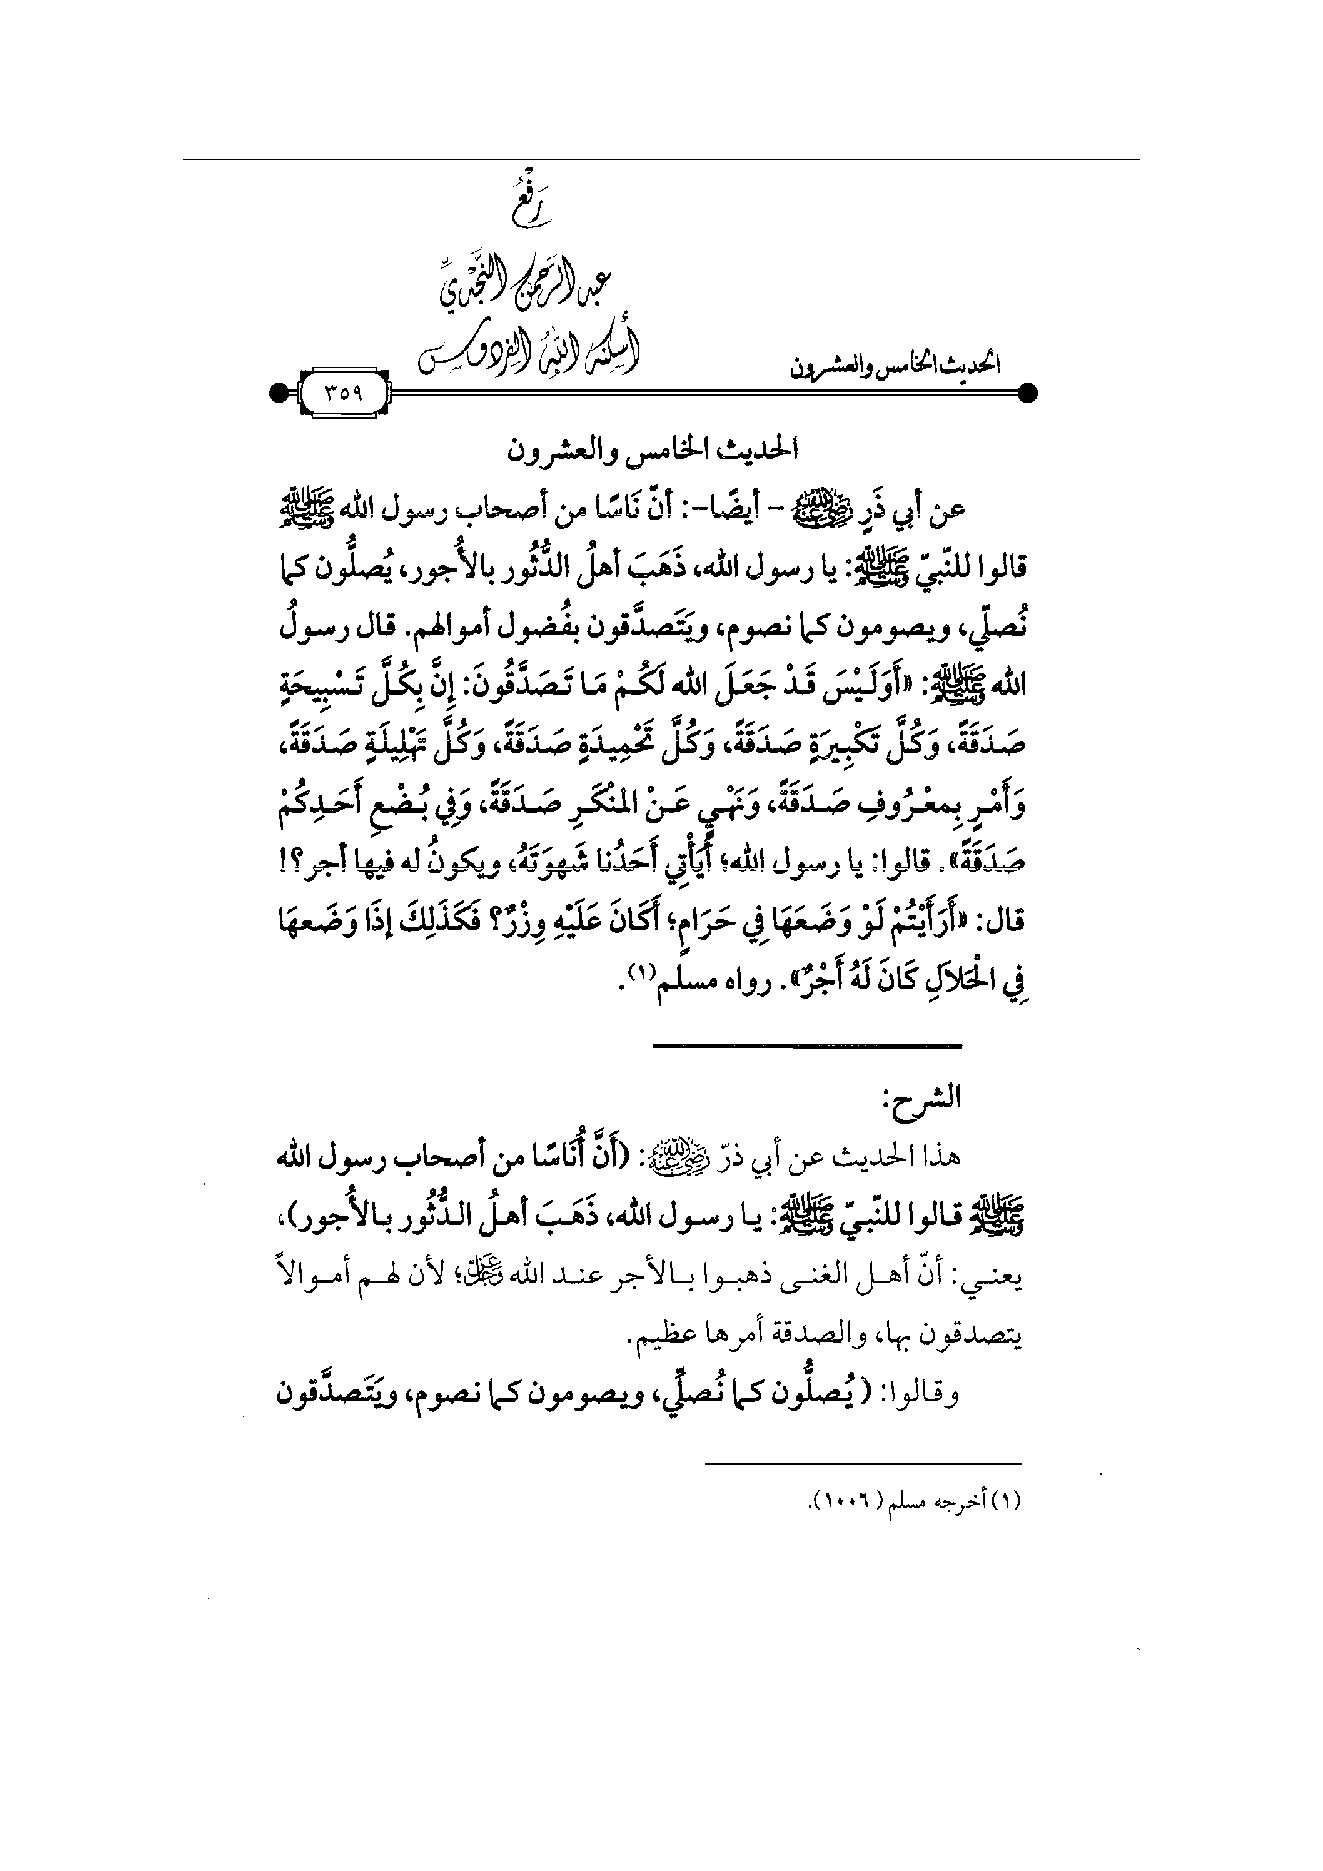 رَفْعُ
عبد الرحمن النجدي
أسكنه الله الفردوس
الحديث الخامس والعشرون
٣٥٩
الحديث الخامس والعشرون
عن أبي ذَرٍ رضي الله عنه - أيضًا-: أنّ نَاسًا من أصحاب رسول الله ﷺ
قالوا للنّبيّ ﷺ: يا رسول الله، ذَهَبَ أهلُ الدُّثُور بالأُجور، يُصلُّون كما
نُصلّي، ويصومون كما نصوم، ويَتَصدَّقون بفُضول أموالهم. قال رسولُ
الله ﷺ: «أَوَلَيْسَ قَدْ جَعَلَ الله لَكُمْ مَا تَصَدَّقُونَ: إِنَّ بِكُلِّ تَسْبِيحَةٍ
صَدَقَةً، وَكُلِّ تَكْبِيرَةٍ صَدَقَةً، وَكُلِّ تَحْمِيدَةٍ صَدَقَةً، وَكُلِّ تَهْلِيلَةٍ صَدَقَةً،
وَأَمْرٍ بِمعْرُوفٍ صَدَقَةً، وَنَهْيٍ عَنْ المنْكَرِ صَدَقَةً، وَفِي بُضْعِ أَحَدِكُمْ
صَدَقَةً». قالوا: يا رسول الله؛ أَيَأْتِي أَحَدُنا شَهوَتَهُ، ويكونُ له فيها أجر؟!
قال: «أَرَأَيْتُمْ لَوْ وَضَعَهَا فِي حَرَامٍ؛ أَكَانَ عَلَيْهِ وِزْرٌ؟ فَكَذَلِكَ إذَا وَضَعهَا
فِي الْحَلاَلِ كَانَ لَهُ أَجْرٌ». رواه مسلم(١).
الشرح:
هذا الحديث عن أبي ذرّ رضي الله عنه: (أَنَّ أُنَاسًا من أصحاب رسول الله
ﷺ قالوا للنّبيّ ﷺ: يا رسول الله، ذَهَبَ أهلُ الدُّثُور بالأُجور)،
يعني: أنّ أهل الغنى ذهبوا بالأجر عند الله عز وجل؛ لأن لهم أموالاً
يتصدقون بها، والصدقة أمرها عظيم.
وقالوا: (يُصلُّون كما نُصلِّي، ويصومون كما نصوم، ويَتَصدَّقون
(١) أخرجه مسلم (١٠٠٦).